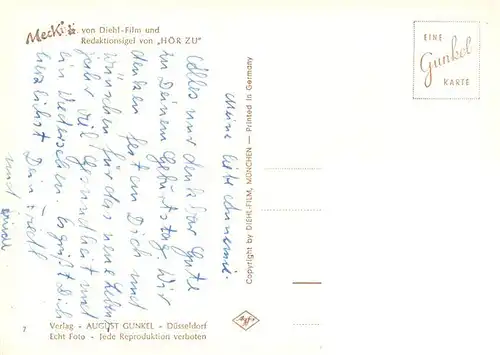 Mecki
von Diehl-Film und
Redaktionsigel von „HÖR ZU"
EINE
Gunkel
KARTE
Meine liebe Annemie.
Alles nur denkbar Gute
zu Deinem Geburtstag. Wir
denken fest an Dich und
wünschen für das neue Lebens
jahr viel Gesundheit und
ein Wiedersehen. Es grüßt Dich
herzlichst Dein Fredl
und
Copyright by DIEHL-FILM, MÜNCHEN — Printed in Germany
Agfa
7
Verlag - AUGUST GUNKEL - Düsseldorf
Echt Foto - Jede Reproduktion verboten